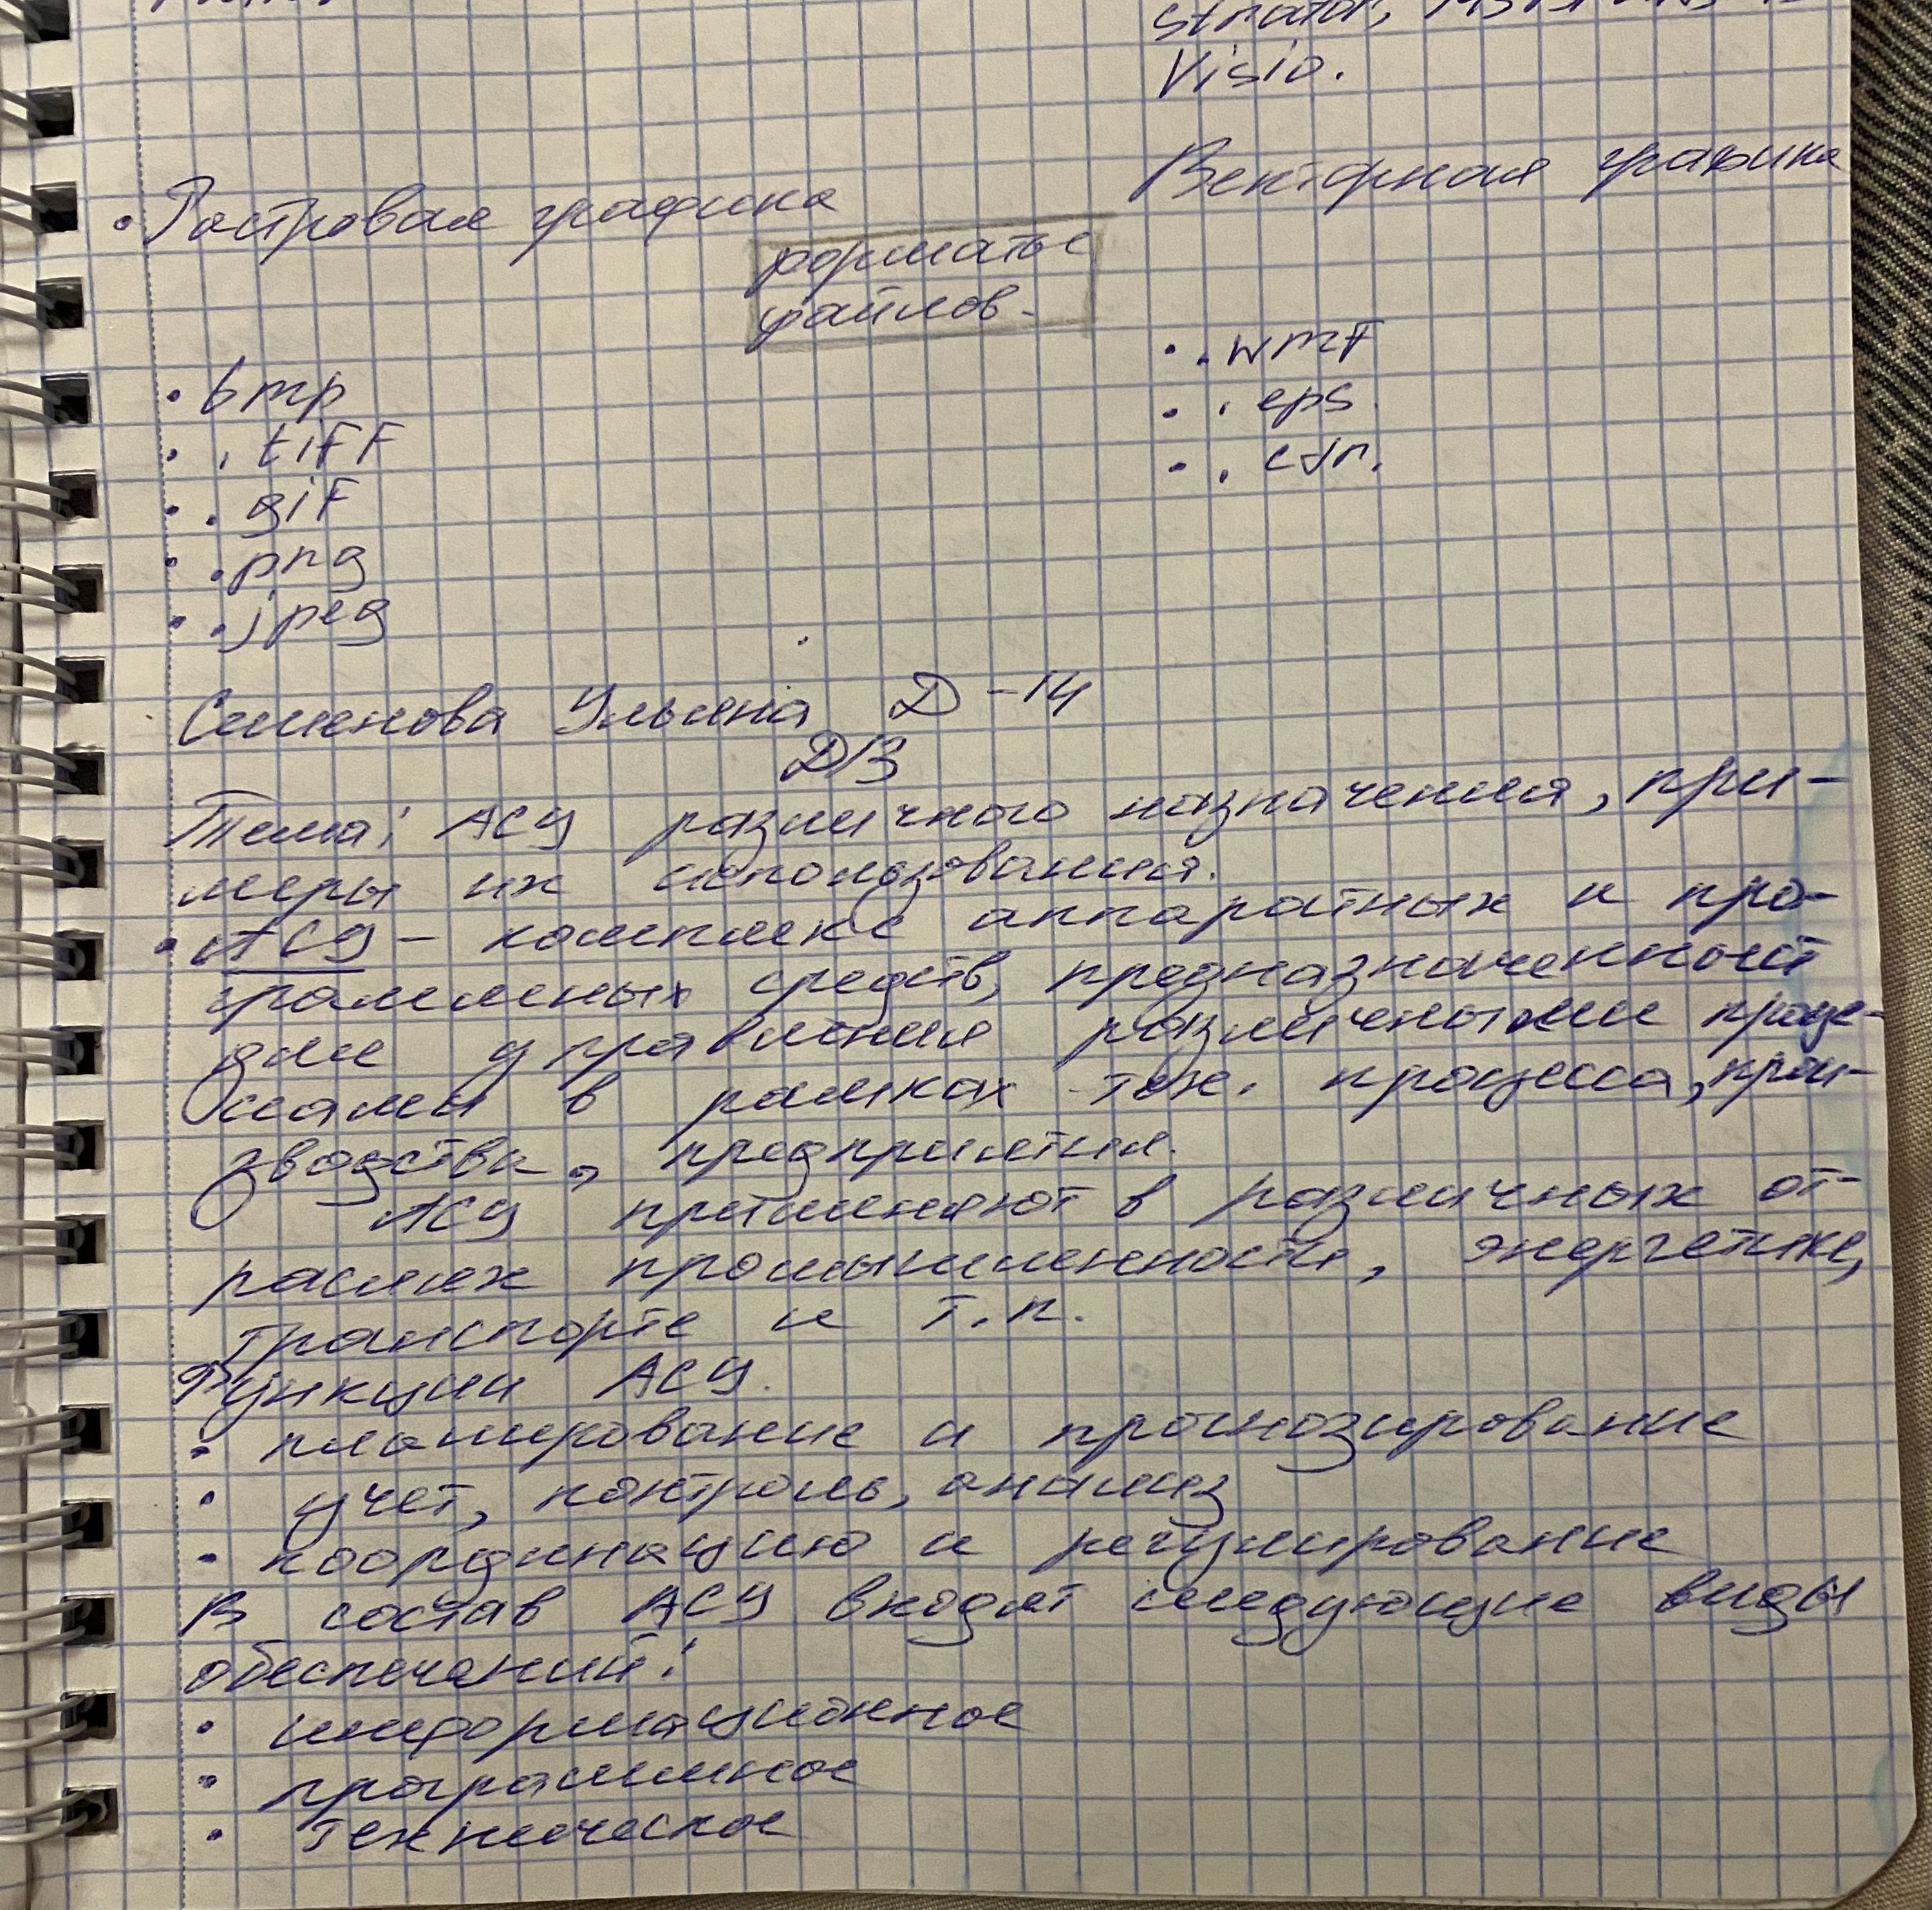 strator, MS
Visio.
• Растровая графика
Векторная графика
форматы
файлов.
• .wmF
• .eps.
• .cdr.
• bmp
• .tiFF
• .giF
• .png
• .jpeg
Семенова Ульяна Д-14
Д/З
Тема: АСУ различного назначения, при-
меры их использования.
• АСУ - комплекс аппаратных и про-
граммных средств, предназначенный
для управления различными проце-
ссами в рамках тех. процесса, прои-
зводства, предприятия.
АСУ применяют в различных от-
раслях промышленности, энергетике,
транспорте и т.п.
Функции АСУ.
• планирование и прогнозирование
• учет, контроль, анализ
• координацию и регулирование
В состав АСУ входят следующие виды
обеспечений:
• информационное
• программное
• техническое